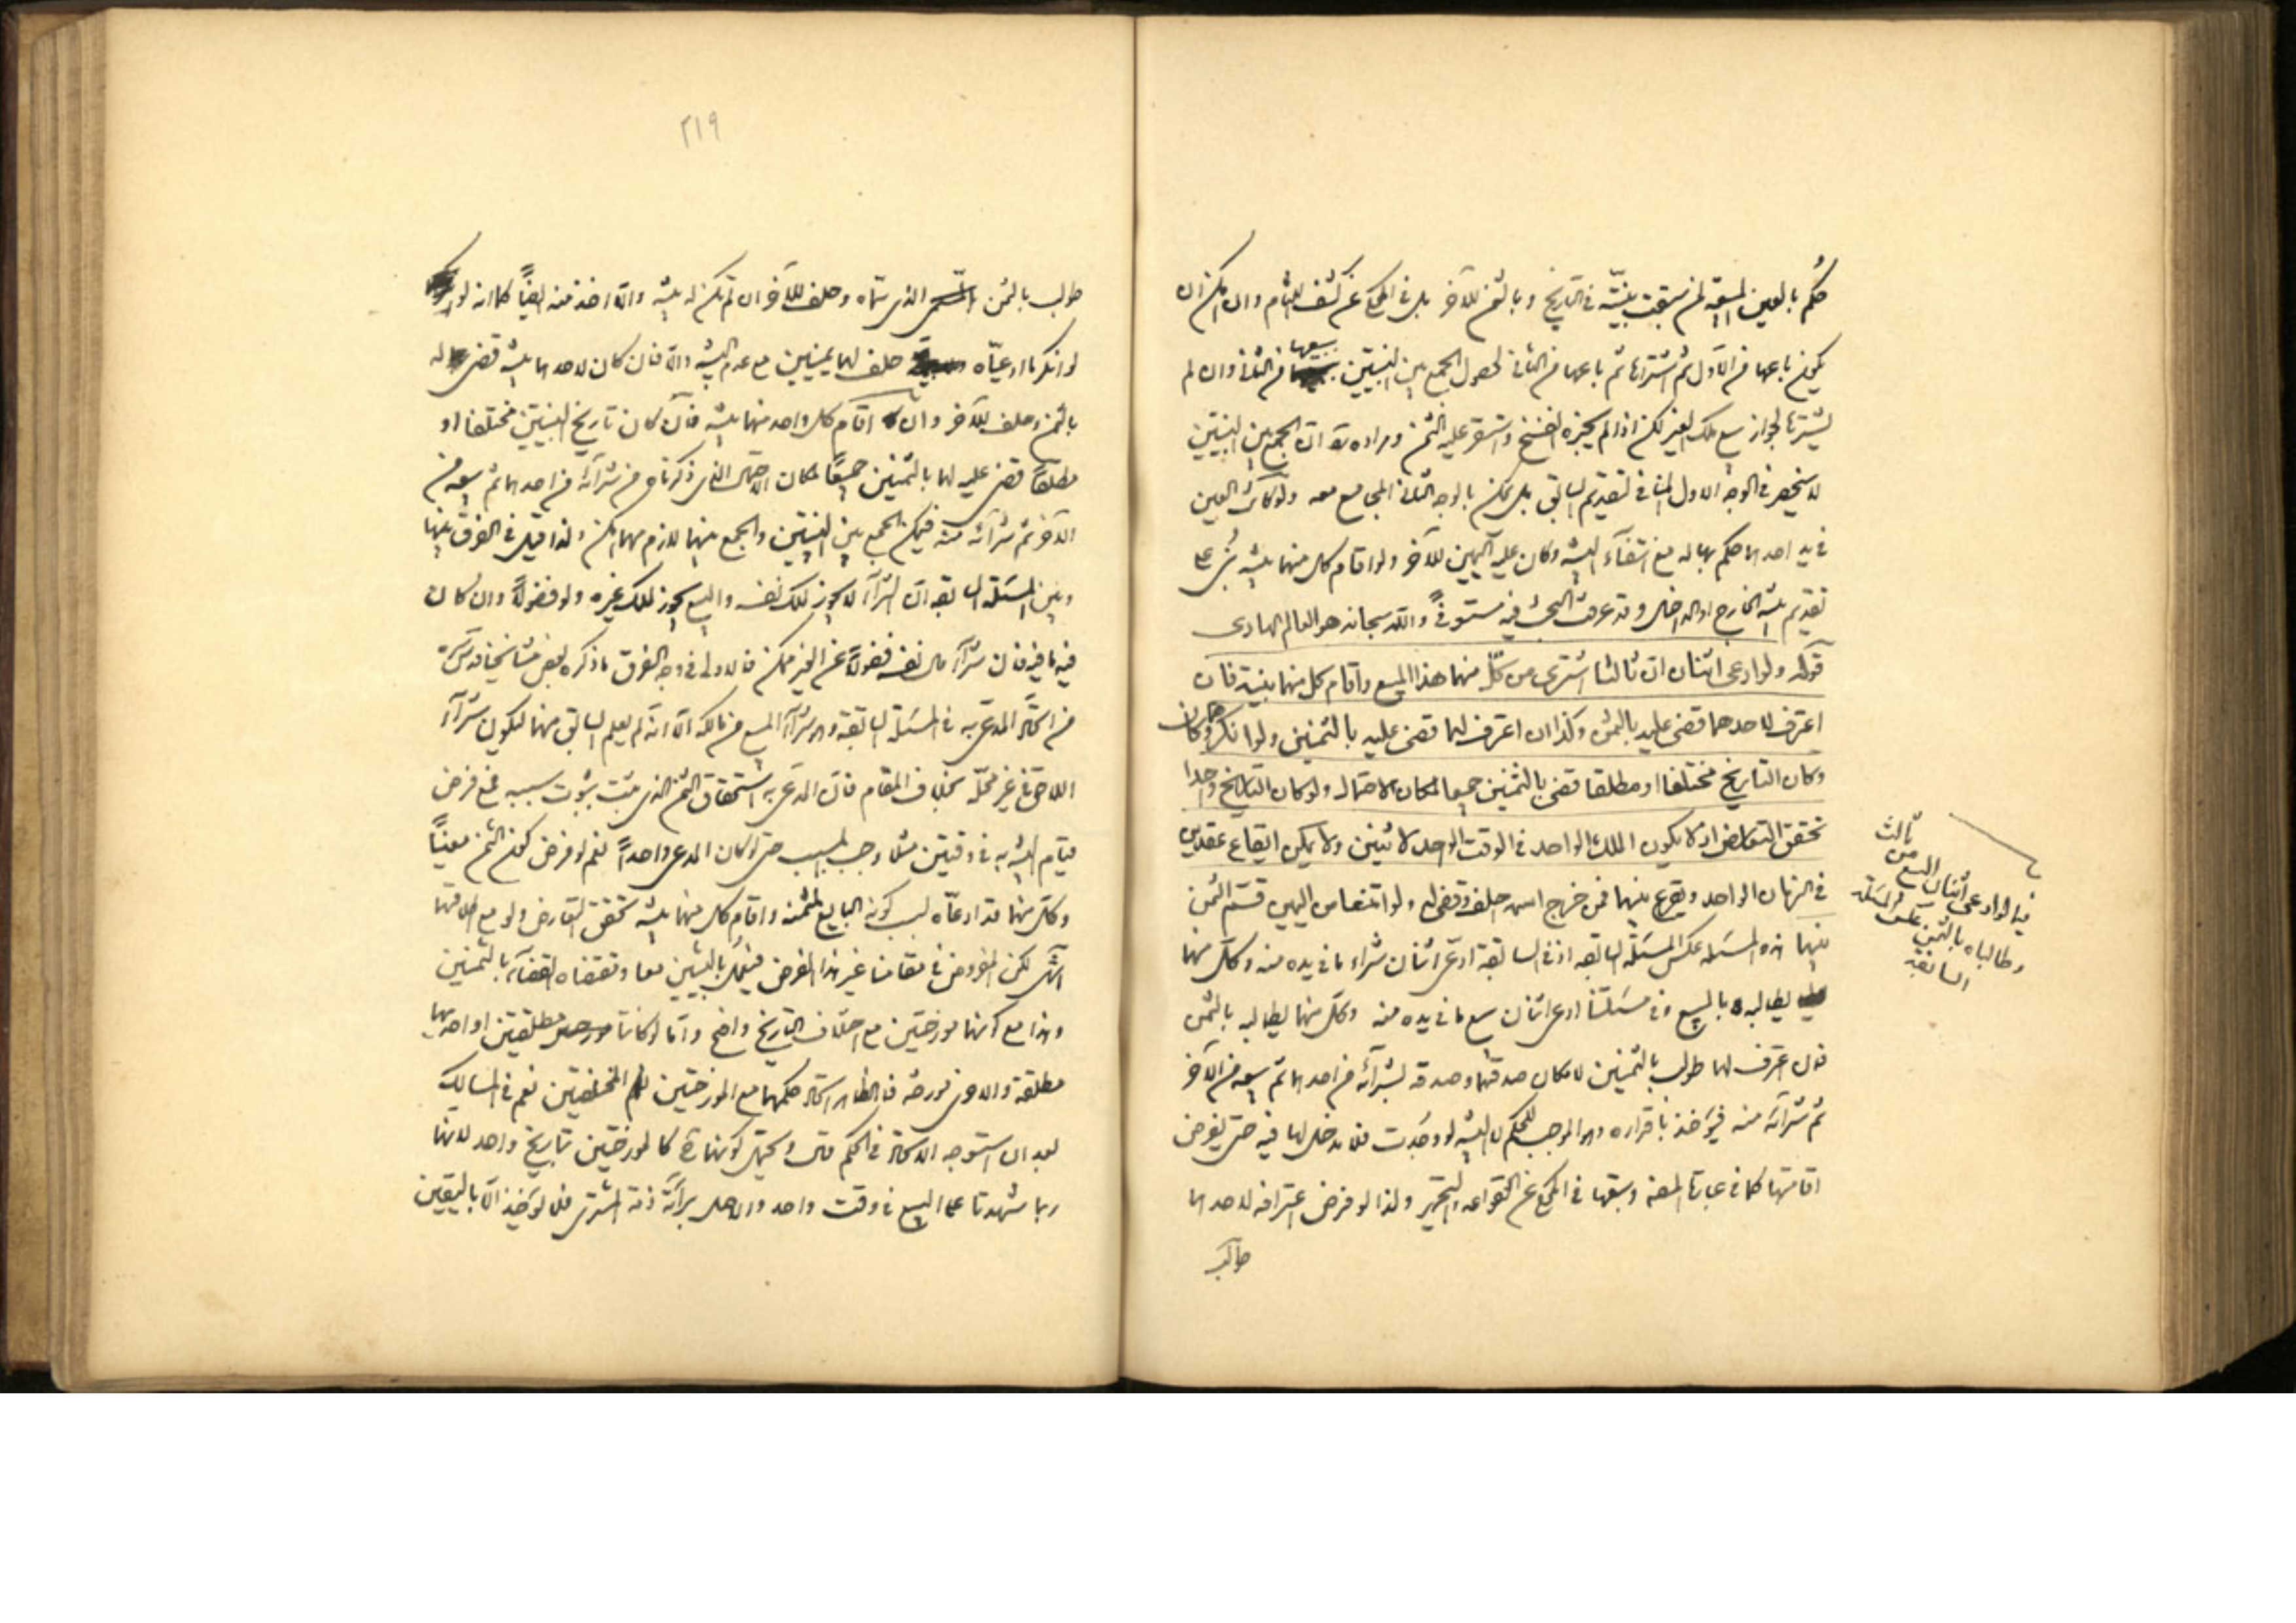 حكم بالعين المبيعة لمن سبقت بينته في التاريخ وبالثمن للآخر بل في المحكي عن كشف اللثام وان امكن ان
يكون باعها من الأول ثم اشتراها ثم باعها من الثاني لحصول الجمع بين البينتين ببيعها من الثاني وان لم
يشترها لجواز بيع ملك الغير لكن اذا لم يجزه انفسخ واستقر عليه الثمن ومراده ره ان الجمع بين البينتين
لا ينحصر في الوجه الاول المنافي لتقديم السابق بل يمكن بالوجه الثاني المجامع معه ولو كانت العين
في يد احدهما حكم بها له مع انتفاء البينة وكان عليه اليمين للآخر ولو اقام كل منهما بينة بني على
تقديم بينة الخارج او الداخل وقد عرفت البحث فيه مستوفى والله سبحانه هو العالم الهادي
قوله ولو ادعى اثنان ان ثالثا اشترى من كل منهما هذا المبيع واقام كل منهما بينة فان
اعترف لاحدهما قضى عليه بالثمن وكذا ان اعترف لهما قضى عليه بالثمنين ولو انكر وكان
وكان التاريخ مختلفا او مطلقا قضى بالثمنين جميعا لمكان الاحتمال ولو كان التاريخ واحدا
تحقق التعارض اذ لا يكون الملك الواحد في الوقت الواحد لاثنين ولا يمكن ايقاع عقدين
في الزمان الواحد ويقرع بينهما فمن خرج اسمه احلف وقضى له ولو امتنعا من اليمين قسم الثمن
بينهما هذه المسئلة عكس المسئلة السابقة اذ في السابقة ادعى اثنان شراء ما في يده منه وكل منهما
يطالبه بالمبيع وفي مسئلتنا ادعى اثنان بيع ما في يده منه وكل منهما يطالبه بالثمن
فان اعترف لهما طولب بالثمنين لامكان صدقهما وصدقه بشرائه من احدهما ثم بيعه من الآخر
ثم شرائه منه فيؤخذ باقراره وهو الموجب للحكم لا البينة لو وجدت فلا مدخل لها فيه حتى يفرض
اقامتها كما في عبارة المصنف وسبقها في المحكي عن القواعد والتحرير ولذا لو فرض اعترافه لاحدهما
طولب
ثالث
فيما لو ادعى اثنان البيع من
وطالباه بالثمن عكس المسئلة
السابقة
٢١٩
طولب بالثمن الذي سماه وحلف للآخر ان لم تكن له بينة والا اخذ منه ايضا كما انه
لو انكر ما ادعياه حلف لهما يمينين مع عدم البينة والا فان كان لاحدهما بينة قضى له
بالثمن وحلف للآخر وان اقام كل واحد منهما بينة فان كان تاريخ البينتين مختلفا او
مطلقا قضى عليه لهما بالثمنين جميعا لمكان الاحتمال الذي ذكرناه من شرائه من احدهما ثم بيعه من
الآخر ثم شرائه منه فيمكن الجمع بين البينتين والجمع بينهما لازم مهما امكن ولذا قيل في الفرق بينها
وبين المسئلة السابقة ان الشراء لا يجوز لملك نفسه والبيع يجوز لملك غيره ولو فضولا وان كان
فيه ما فيه فان شراء مال نفسه فضولا عن الغير ممكن فالاولى في وجه الفرق ما ذكره بعض مشايخنا قدس سره
من اتحاد المدعى به في المسئلة السابقة وهو شراء المبيع من مالكه الا انه لم يعلم السابق منهما ليكون شراء
اللاحق في غير محله بخلاف المقام فان المدعى به استحقاق الثمن الذي يثبت بثبوت سببه فمع فرض
قيام البينة به في وقتين مثلا وجب المسبب حتى لو كان المدعي واحدا نعم لو فرض كون الثمن معينا
وكل منهما قد ادعاه لسبب كونه البايع لمثمنه واقام كل منهما بينة تحقق التعارض ولو مع اطلاقهما
انتهى لكن المفروض في مقامنا غير هذا الفرض فيعمل بالبينتين معا ومقتضاه القضاء بالثمنين
وهذا مع كونهما مورختين مع اختلاف التاريخ واضح واما لو كانتا مطلقتين او احديهما
مطلقة والاخرى مورخة فالظاهر اتحاد حكمهما مع المورختين المختلفتين نعم في المسالك
بعد ان استوجه الاتحاد في الحكم قال ويحتمل كونهما كالمورختين بتاريخ واحد لانهما
ربما شهدتا على البيع في وقت واحد والاصل براءة ذمة المشتري فلا يؤخذ الا باليقين